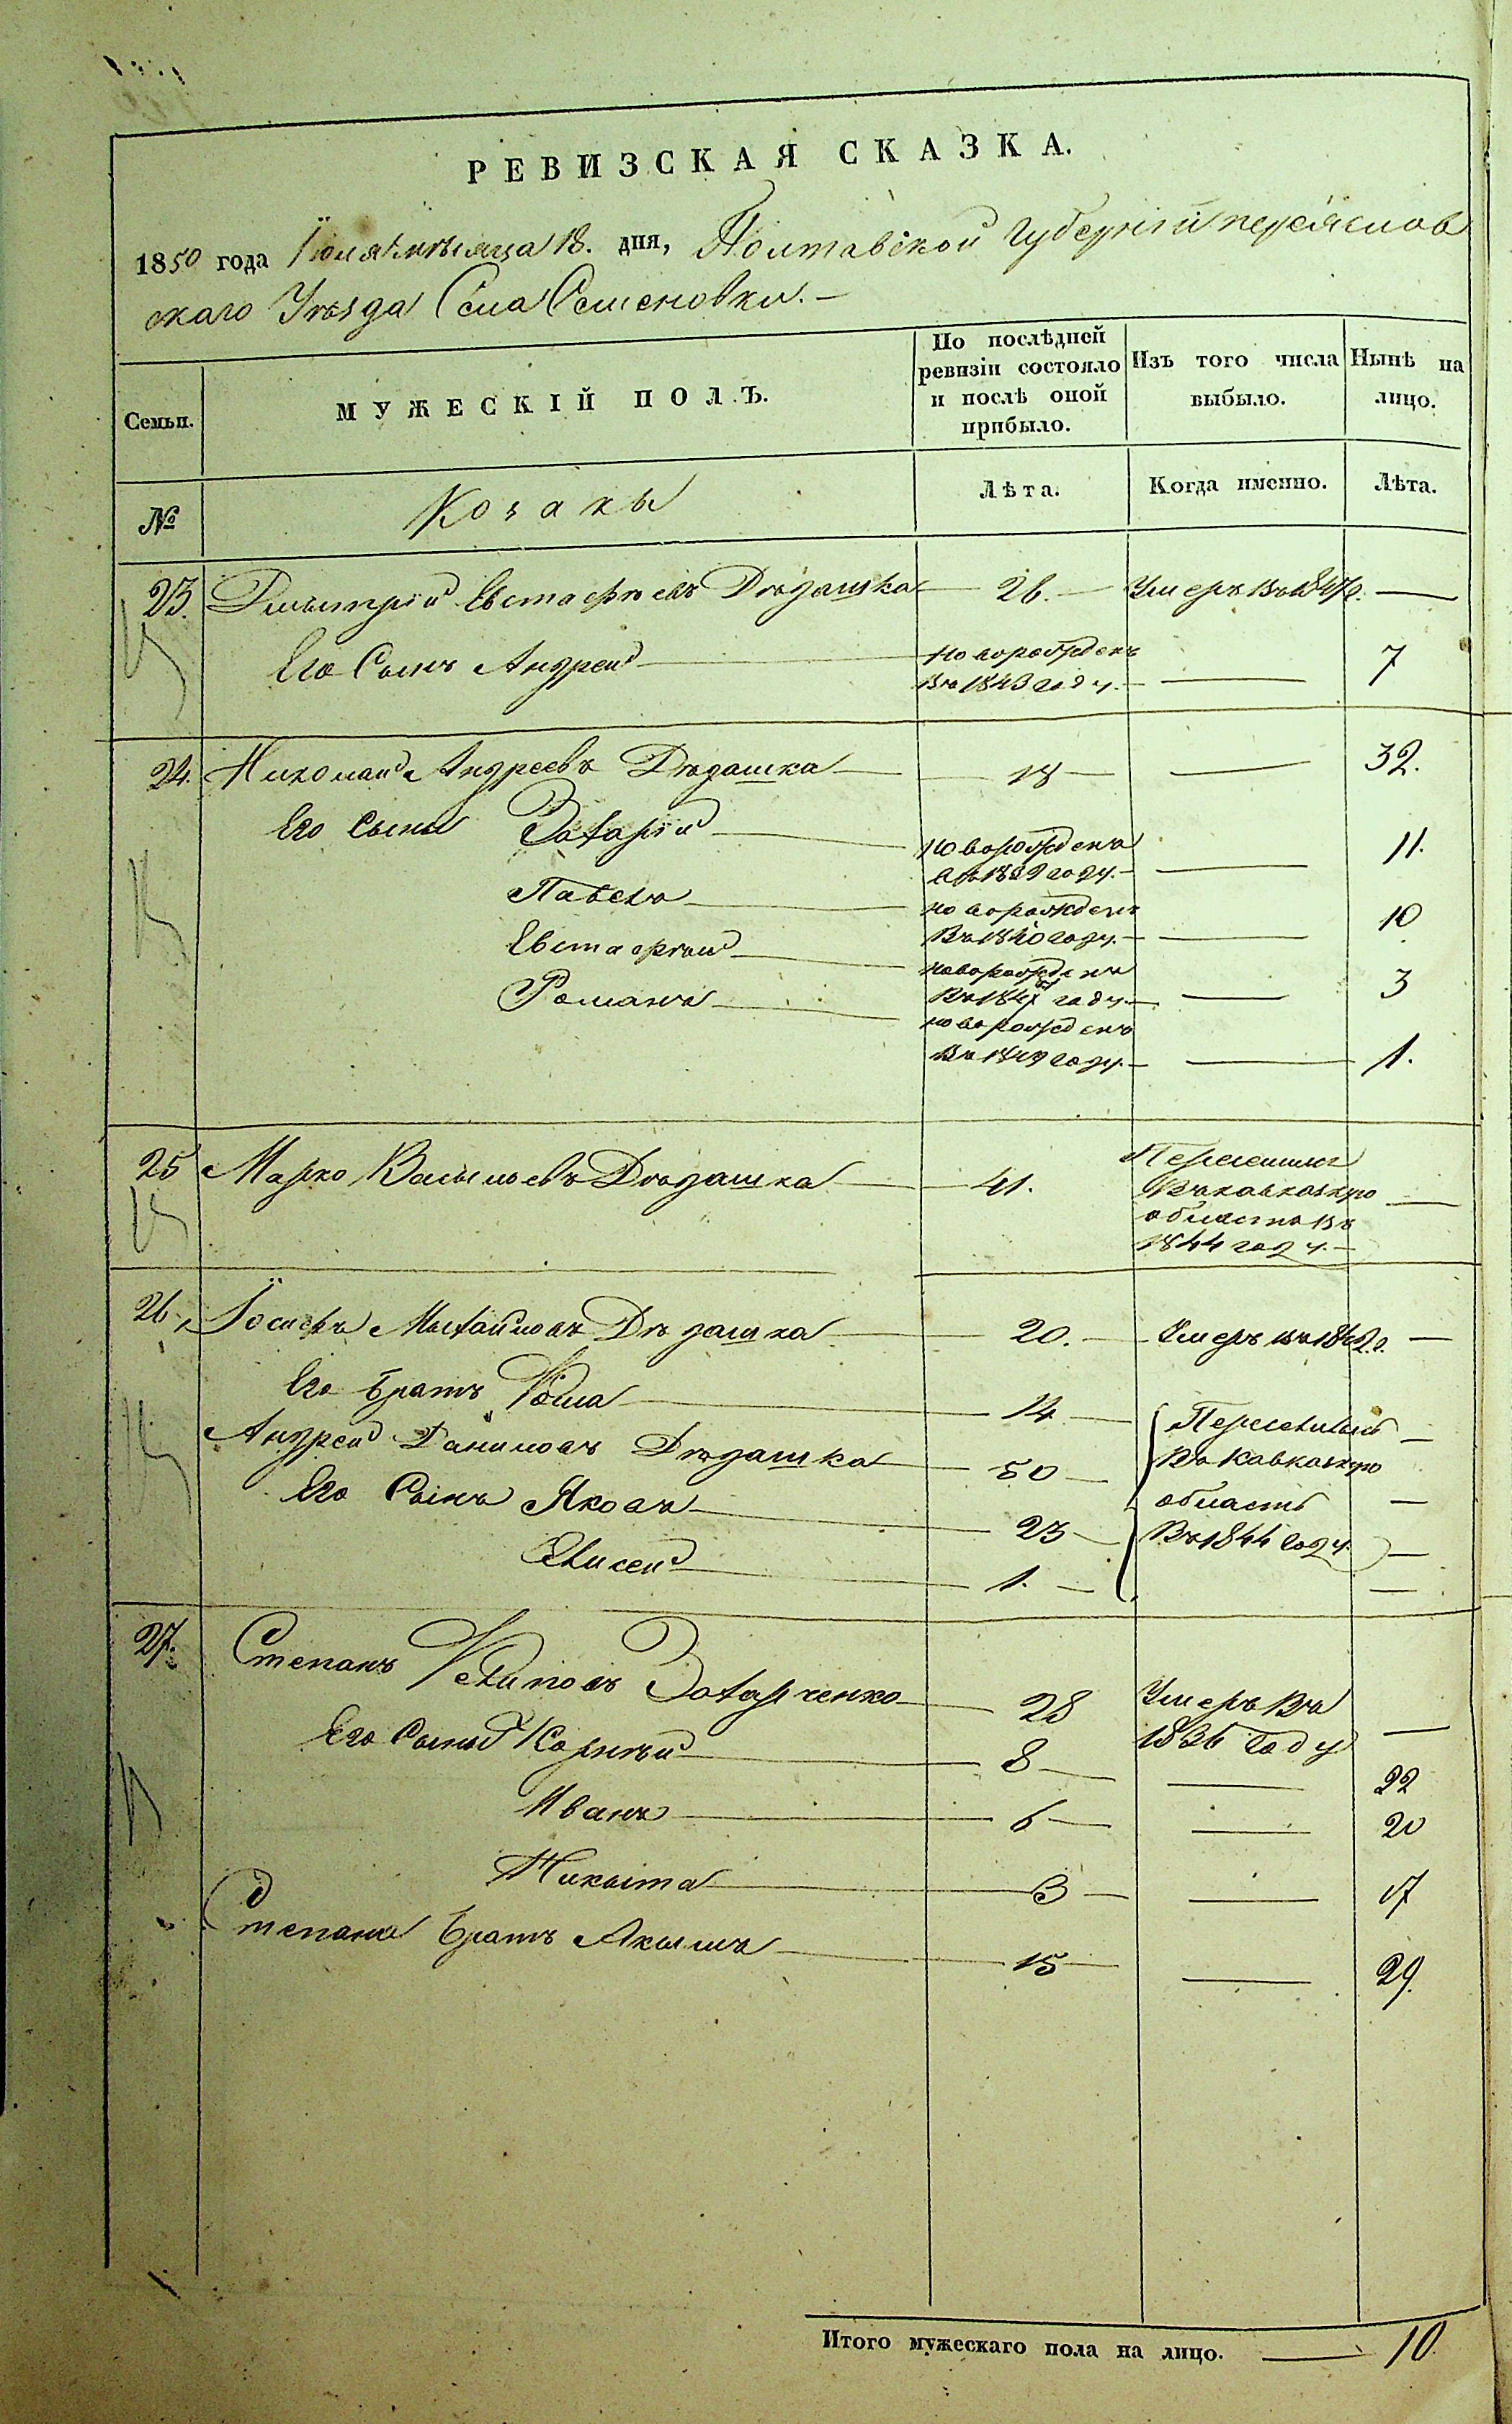 РЕВИЗСКАЯ СКАЗКА.
1850 года Іюля мѣсяца 18. дня, Полтавской Губерніи переяслов
скаго Уѣзда Села Семеновки.—
Семьи.
МУЖЕСКІЙ ПОЛЪ.
По послѣдней ревизіи состояло и послѣ оной прибыло.
Изъ того числа выбыло.
Нынѣ на лицо.
№
Козаки
Лѣта.
Когда именно.
Лѣта.
23. Дмытрій Евстафіевъ Дѣдашка — 26. — Умеръ въ 1847г. —
Его Сынъ Андрей — новорожденъ въ 1843 году. — 7
24. Николай Андреевъ Дѣдашка — 18 — 32.
Его Сыны Захарій — новорожденъ въ 1839 году. — 11.
Павелъ — новорожденъ въ 1840 году. — 10
Евстафій — новорожденъ въ 1847 году — 3
Романъ — новорожденъ въ 1849 году. — 1.
25 Марко Васыльевъ Дѣдашка — 41. Переселился въ кавказкую область въ 1844 году. —
26. Іосифъ Мыхайловъ Дѣдашка — 20. — Умеръ въ 1842г. —
Его Братъ Кома — 14 —
Андрей Даниловъ Дѣдашка — 50 —
Его Сынъ Яковъ — 23 —
Елисей — 1. —
Переселились въ Кавказкую область въ 1844 году. —
27. Степанъ Филиповъ Захарченко — 28 Умеръ въ 1836 году —
Его Сыны Корнѣй — 8 — 22
Иванъ — 6 — 20
Никыта — 3 — 17
Степана Братъ Акымъ — 15 — 29.
Итого мужескаго пола на лицо. — 10